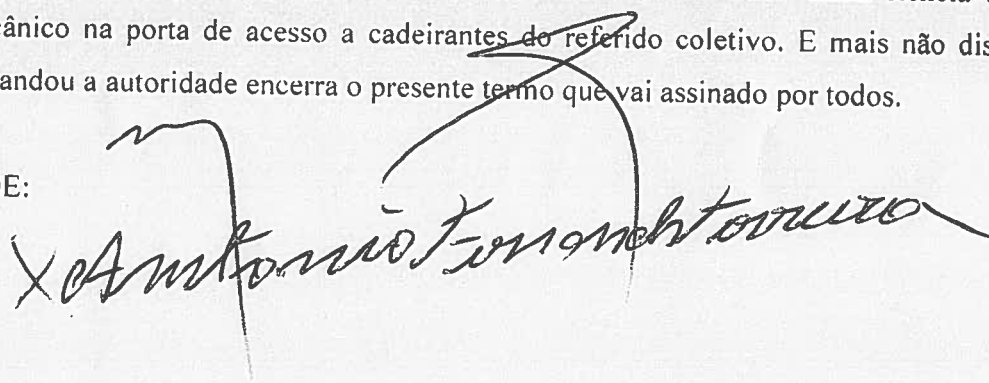 ânico na porta de acesso a cadeirantes do referido coletivo. E mais não dis
andou a autoridade encerra o presente termo que vai assinado por todos.
E:
X Antonio